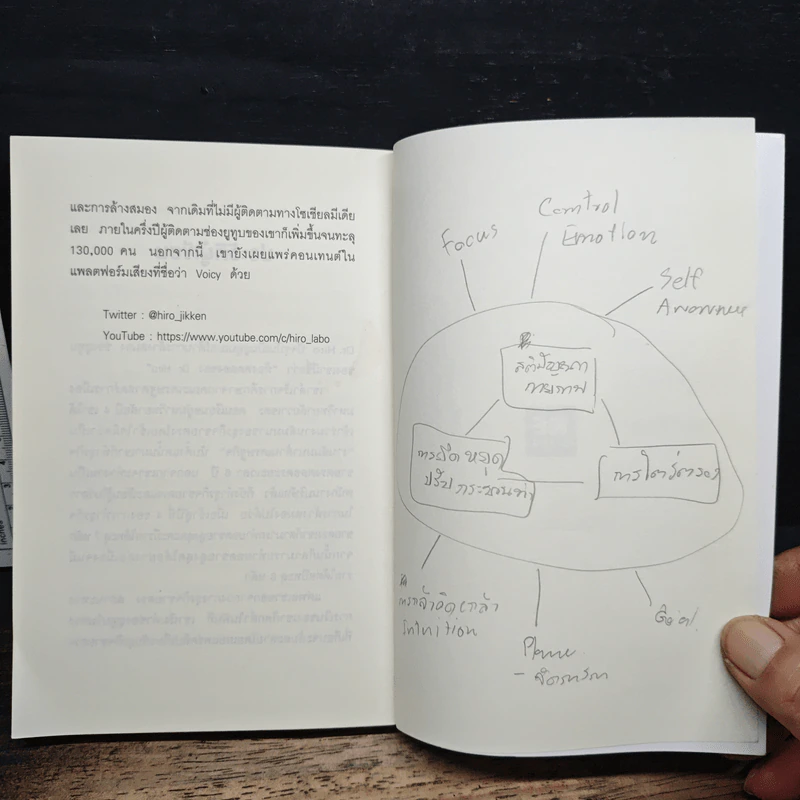 และการล้างสมอง จากเดิมที่ไม่มีผู้ติดตามทางโซเชียลมีเดีย
เลย ภายในครึ่งปีผู้ติดตามช่องยูทูบของเขาก็เพิ่มขึ้นจนทะลุ
130,000 คน นอกจากนี้ เขายังเผยแพร่คอนเทนต์ใน
แพลตฟอร์มเสียงที่ชื่อว่า Voicy ด้วย
Twitter : @hiro_jikken
YouTube : https://www.youtube.com/c/hiro_labo
Focus
Control
Emotion
Self
สติปัญญา
กายภาพ
การยึด หยุด
ปรับ
การไตร่ตรอง
Intuition